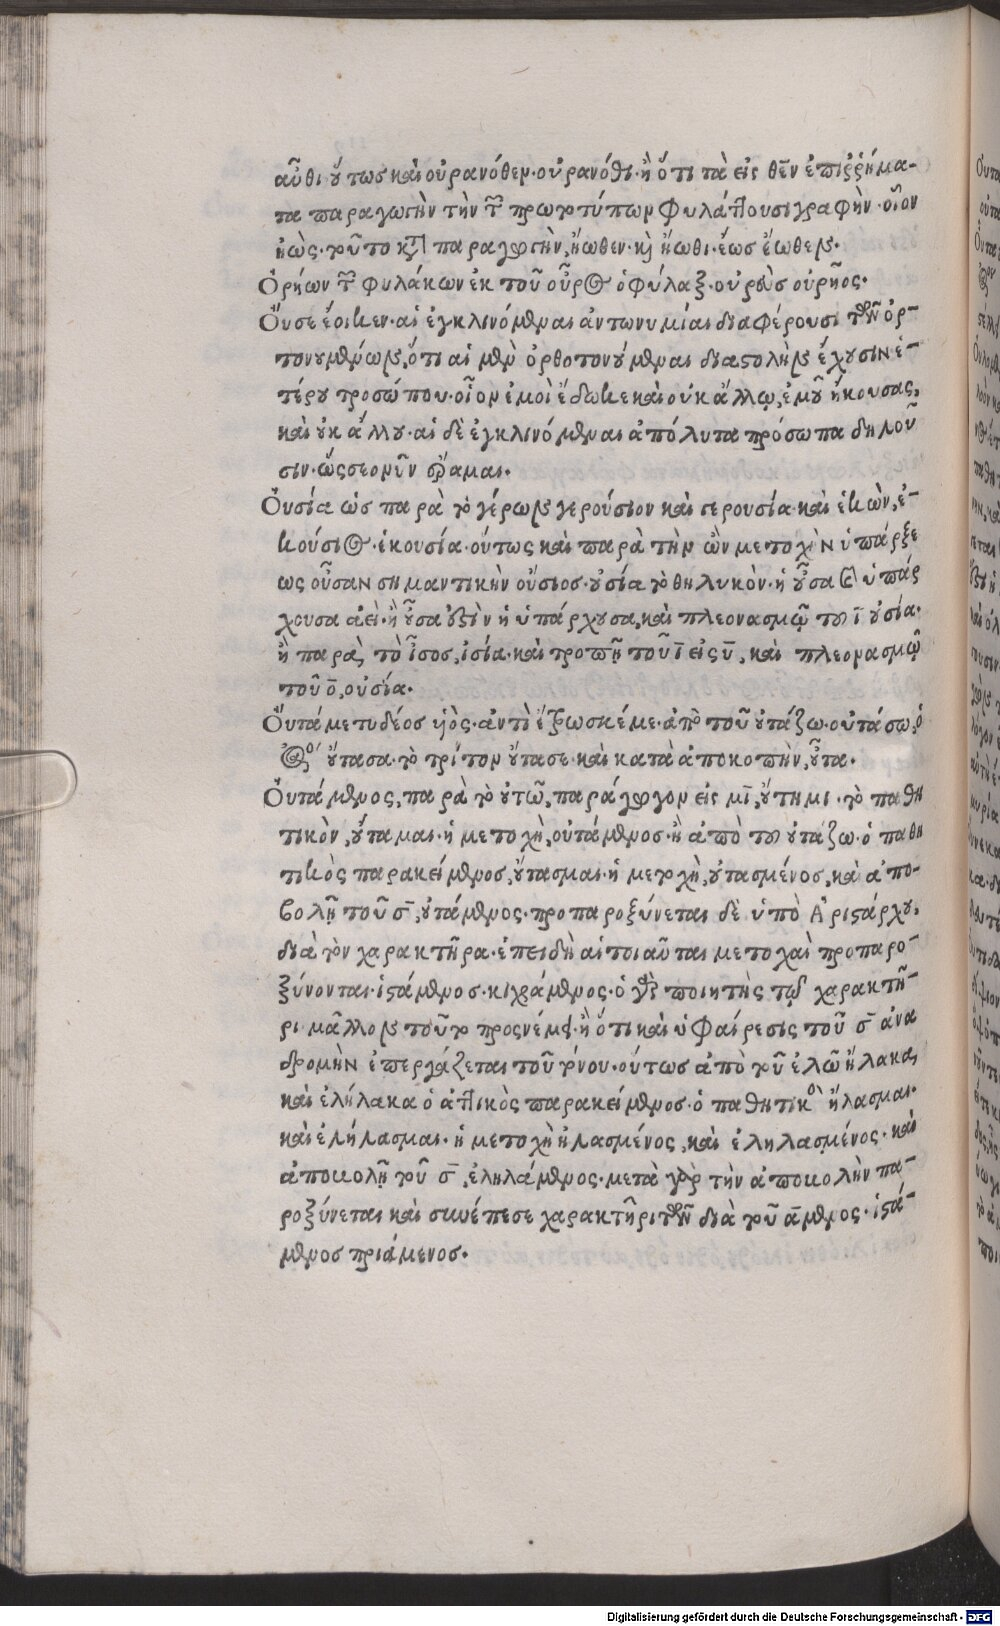 αὖθι οὕτωσ καὶ οὐρανόθεν. οὐρανόθι. ἢ ὅτι τὰ εἰς θε̄ν ἐπιῤῥήμα-
τα παραγωγὴν τὴν τῶν πρωτοτύπων φυλάττουσι γραφὴν. οἷον
ἠὼς. τοῦτο κατὰ παραγωγὴν, ἤωθεν. καὶ ἤωθι. ἕως ἕωθεν.
Ὀρήων τῶν φυλάκων ἐκ τοῦ οὖρος ὁ φύλαξ. οὐρεὺσ οὐρῆος.
Οὔσε ἔοικεν. αἱ ἐγκλινόμεναι ἀντωνυμίαι διαφέρουσι τῶν ὀρ-
τονουμένων, ὅτι αἱ μὲν ὀρθοτονούμεναι διαστολὴν ἔχουσιν ἑ-
τέρου προσώπου. οἷον ἐμοὶ ἔδωκε καὶ οὐκ ἄλλῳ, ἐμοῦ ἤκουσας,
καὶ οὐκ ἄλλου. αἱ δὲ ἐγκλινόμεναι ἀπόλυτα πρόσωπα δηλοῦ
σιν. ὥς σεο νῦν ἔραμαι.
Οὐσία ὡσ παρὰ τὸ γέρων γερούσιον καὶ γερουσία. καὶ ἑκὼν, ἑ-
κούσιος. ἑκουσία. οὕτως καὶ παρὰ τὴν ὢν μετοχὴν ὑπάρξε
ως οὖσαν σημαντικὴν οὔσιοσ. οὐσία τὸ θηλυκὸν. ἡ οὖσα καὶ ὑπάρ
χουσα ἀεὶ. ἢ οὖσα οὐσὶν ἡ ὑπάρχουσα, καὶ πλεονασμῷ τοῦ ῑ οὐσία.
ἢ παρὰ τὸ ἶσοσ, ἰσία. καὶ τροπῇ τοῦ ῑ εἰς ῡ, καὶ πλεονασμῷ
τοῦ ο̄, οὐσία.
Οὔτά με τυδέοσ υἱὸς. ἀντὶ ἔτρωσκέ με. ἀπὸ τοῦ οὐτάζω. οὐτάσω, ὁ
ἀόριστος οὔτασα. τὸ τρίτον οὔτασε. καὶ κατὰ ἀποκοπὴν, οὖτα.
Οὐτάμενος, παρὰ τὸ οὐτῶ, παράγωγον εἰς μῑ, οὔτημι. τὸ παθη
τικὸν, οὔταμαι. ἡ μετοχὴ, οὐτάμενοσ. ἢ ἀπὸ τοῦ οὐτάζω. ὁ παθη
τικὸς παρακείμενοσ, οὔτασμαι. ἡ μετοχὴ, οὐτασμένοσ, καὶ ἀπο-
βολῇ τοῦ σ̄, οὐτάμενοσ. προπαροξύνεται δὲ ὑπὸ Ἀριστάρχου,
διὰ τὸν χαρακτῆρα. ἐπειδὴ αἱ τοιαῦται μετοχαὶ προπαρο-
ξύνονται. ἱστάμενοσ. κιχράμενος. ὁ γὰρ ποιητὴς τῷ χαρακτῆ-
ρι μᾶλλον τοῦτο προσνέμει. ἢ ὅτι καὶ ὑφαίρεσις τοῦ σ̄ ἀνα
δρομὴν ἐπεργάζεται τοῦ τόνου. οὕτωσ ἀπὸ τοῦ ἐλῶ ἤλακα,
καὶ ἐλήλακα ὁ ἀττικὸς παρακείμενοσ. ὁ παθητικὸσ ἤλασμαι.
καὶ ἐλήλασμαι. ἡ μετοχὴ ἠλασμένος, καὶ ἐληλασμένος. καὶ
ἀποβολῇ τοῦ σ̄, ἐληλάμενοσ. μετὰ γὰρ τὴν ἀποβολὴν πα-
ροξύνεται καὶ συνέπεσε χαρακτῆρι τῶν διὰ τοῦ ᾱμενοσ. ἱστά-
μενοσ πριάμενοσ.
Digitalisierung gefördert durch die Deutsche Forschungsgemeinschaft - DFG